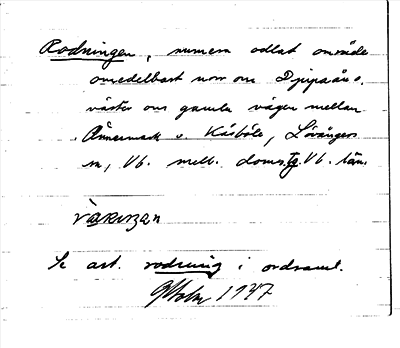 Rodningen, numera odlat område
omedelbart norr om Djupaån o.
väster om gamla vägen mellan
Ånnemark o. Kåsböle, Lövångers
sn, Vb. mell. doms. Vb. län.
Se art. rodning i ordsaml.
1947